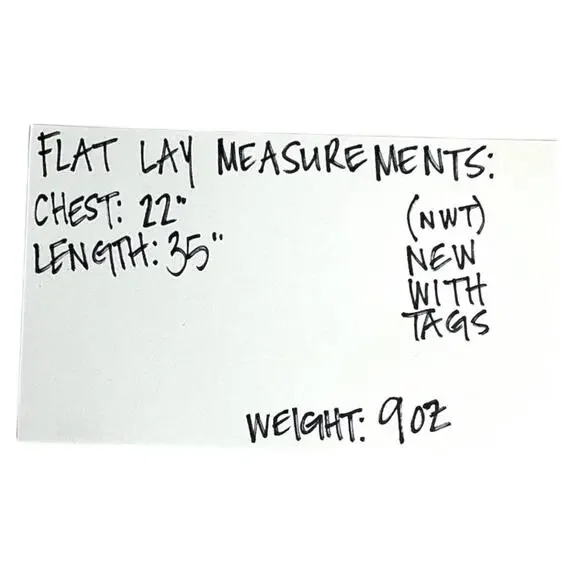 FLAT LAY MEASUREMENTS:
CHEST: 22"
LENGTH: 35"
(NWT)
NEW
WITH
TAGS
WEIGHT: 9 OZ